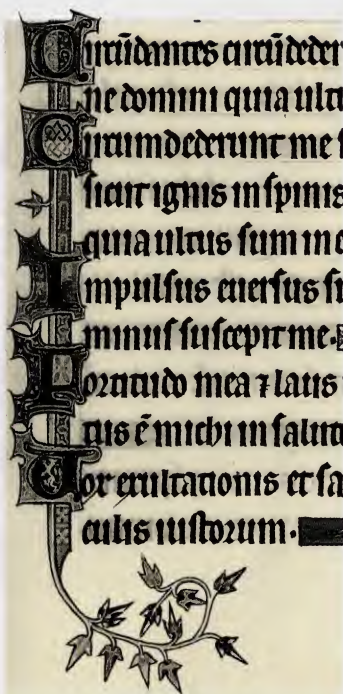 Circūdantes circūdeder
ne domini quia ultu
Circumdederunt me s
sicut ignis in spinis
quia ultus sum in e
Impulsus eversus su
minus suscepit me.
Fortitudo mea ⁊ laus
tus ē michi in salute
Vox exultationis et sa
culis iustorum.